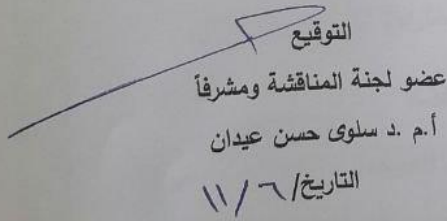 التوقيع
عضو لجنة المناقشة ومشرفاً
أ.م .د سلوى حسن عيدان
التاريخ/ ٦ / ١١